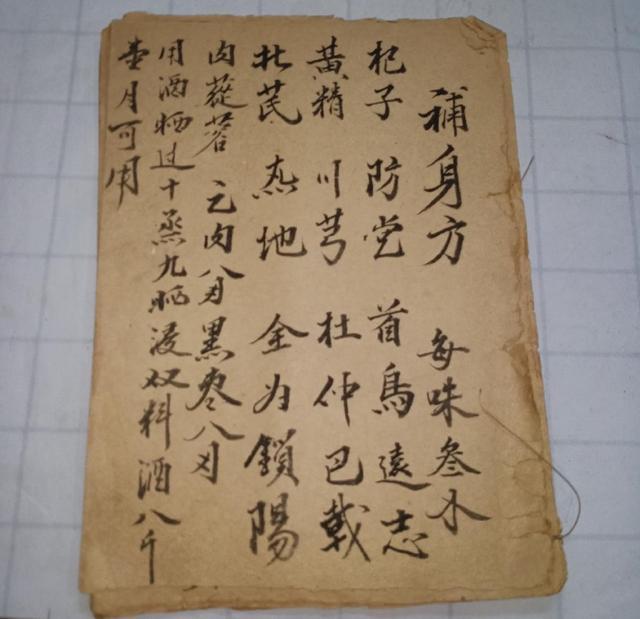 補身方 每味叁不
杞子 防党 首烏遠志
黃精 川芎 杜仲巴戟
北芪 熟地 全归鎖陽
肉蓯蓉 元肉八刄黑枣八刄
用酒晒过十蒸九晒浸双料酒八斤
壷月可用